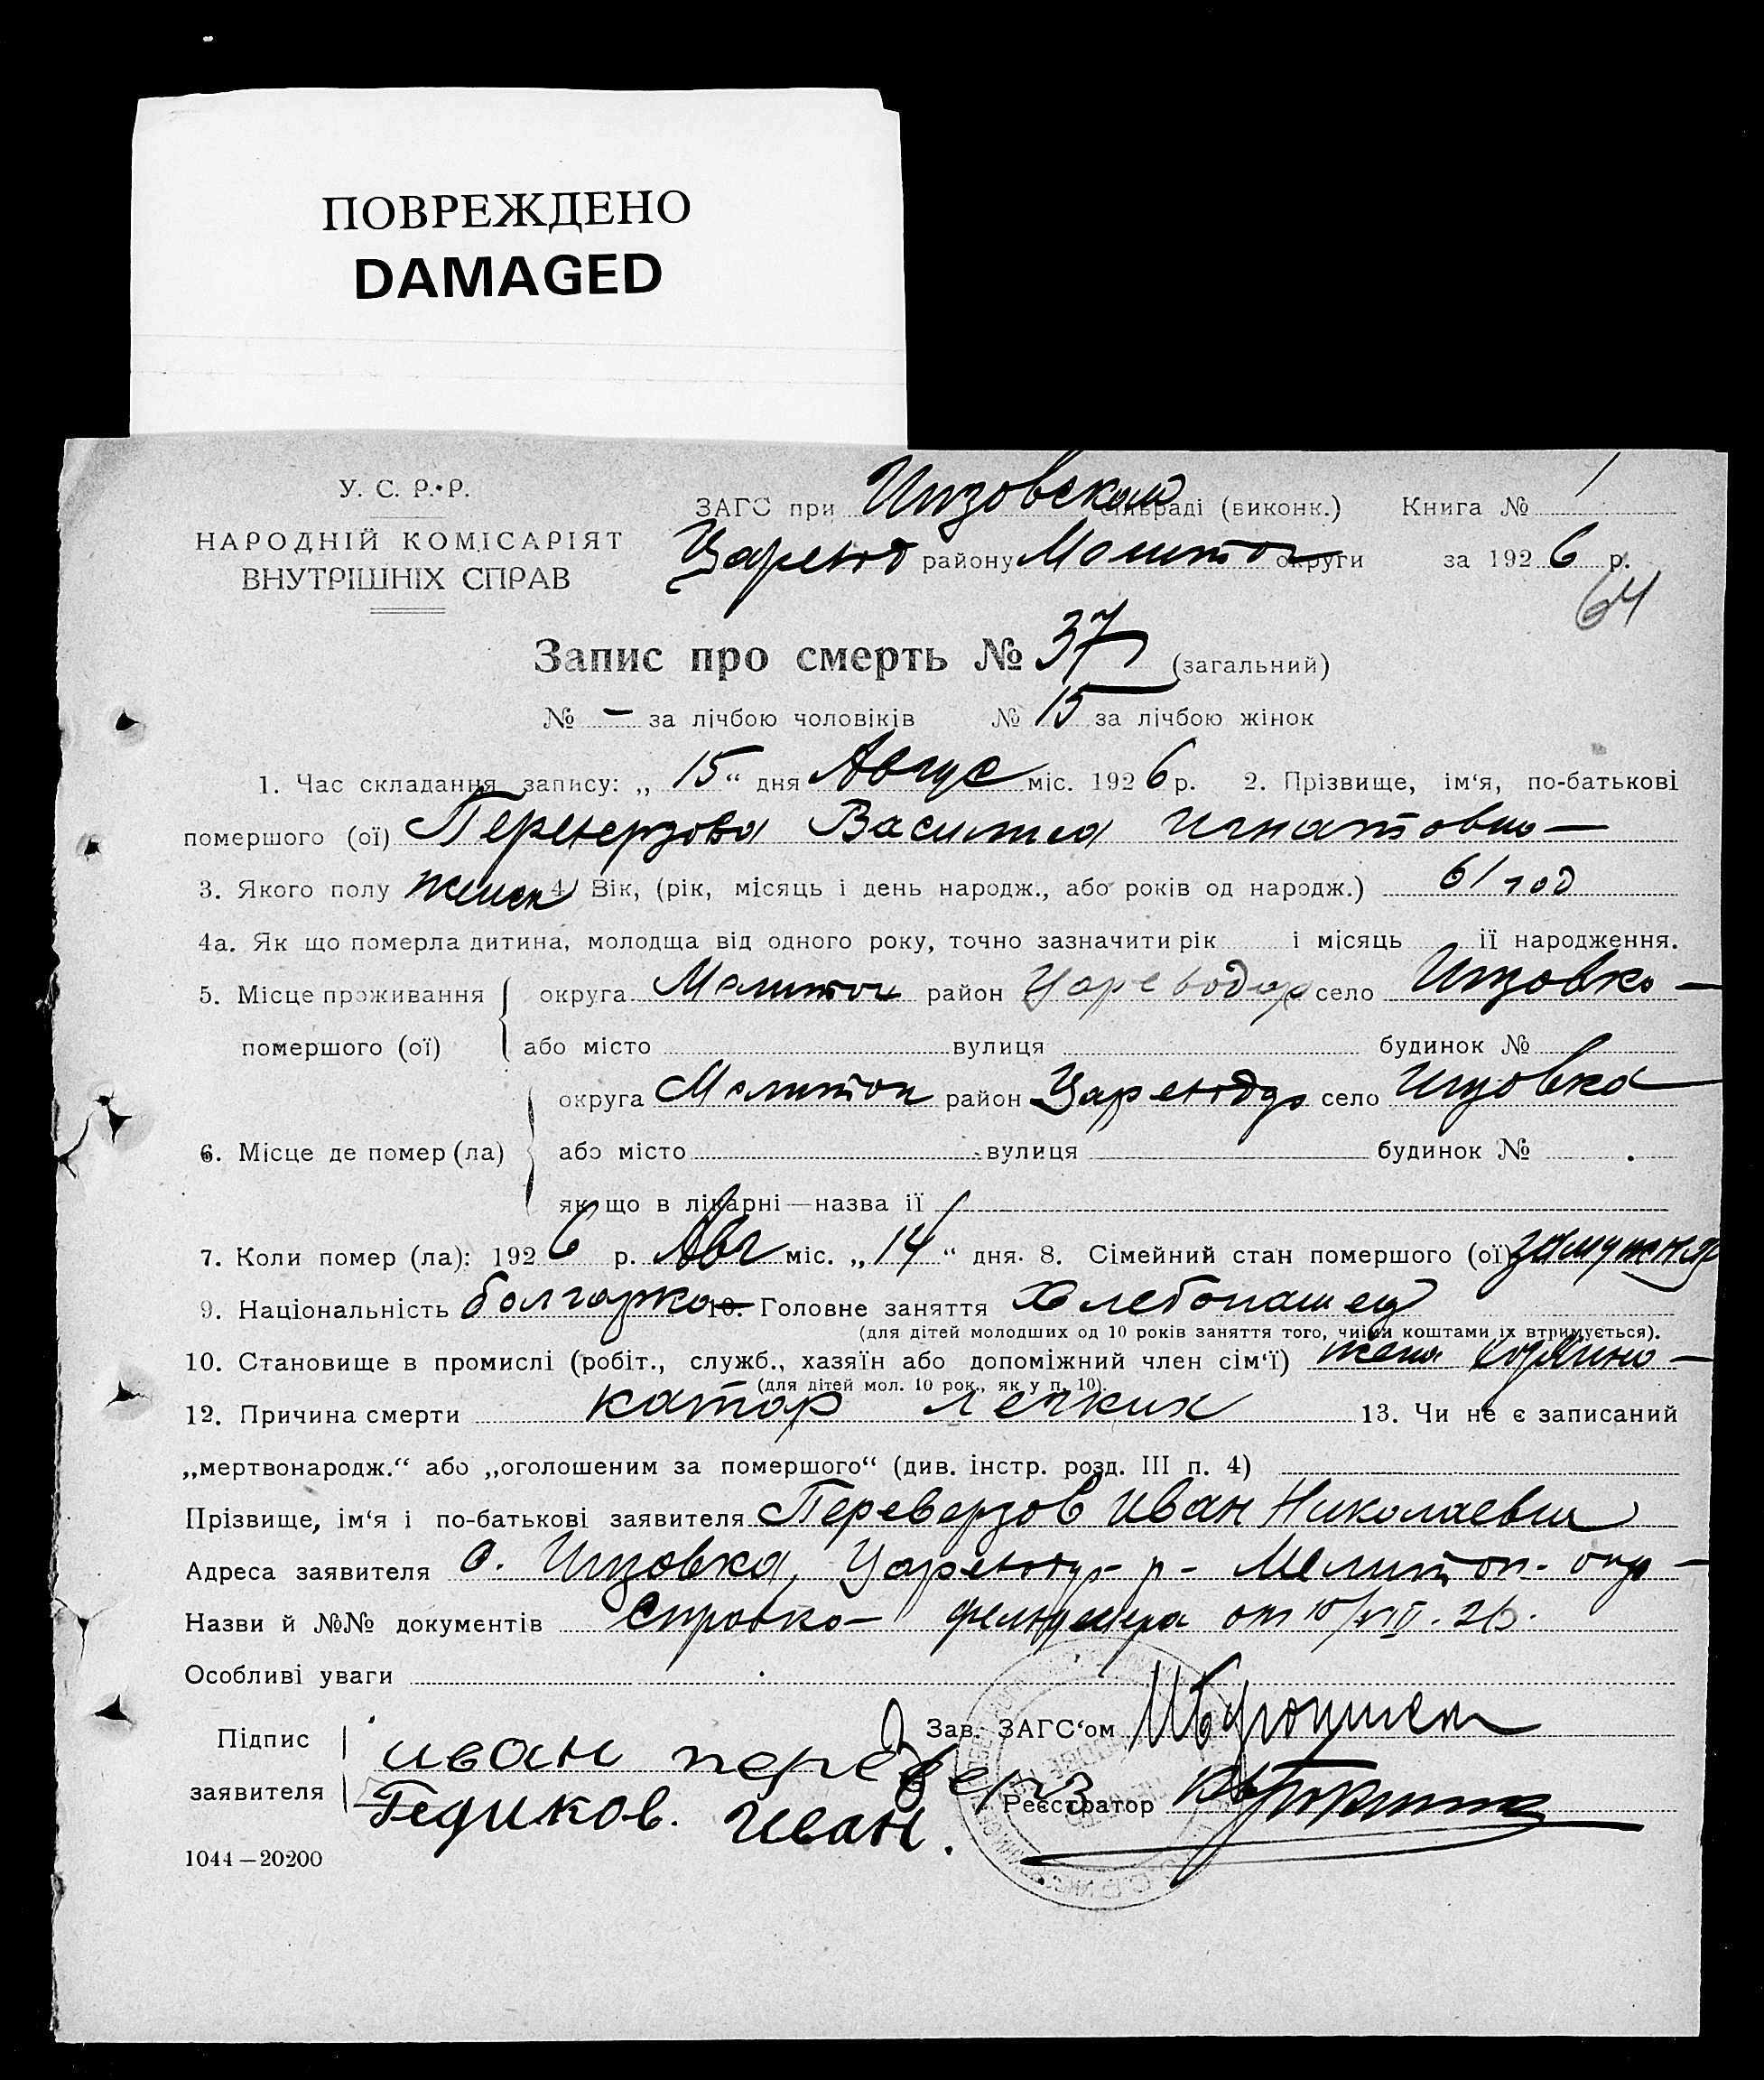 ПОВРЕЖДЕНО
DAMAGED
У. С. Р.Р.
НАРОДНІЙ КОМІСАРІЯТ
ВНУТРІШНІХ СПРАВ
ЗАГС при сільраді (виконк.) Книга № 1
району Мелитоп округи за 1926 р.
64
Запис про смерть № 37 (загальний)
№ — за лічбою чоловіків № 15 за лічбою жінок
1. Час складання запису: „15“ дня Август міс. 1926 р. 2. Прізвище, ім‘я, по-батькові
помершого (ої) Переверзова Василиса Игнатовна
3. Якого полу женск 4) Вік, (рік, місяць і день народж., або років од народж.) 61 год
4а. Як що померла дитина, молодща від одного року, точно зазначити рік і місяць її народження.
5. Місце проживання помершого (ої) округа Мелитоп район Цареводар село
або місто вулиця будинок №
6. Місце де помер (ла) округа Мелитоп район село
або місто вулиця будинок №
як що в лікарні—назва її
7. Коли помер (ла): 1926 р. Авг міс. „14“ дня. 8. Сімейний стан помершого (ої) замужняя
9. Національність болгарка 10. Головне заняття Хлебопашец
(для дітей молодших од 10 років заняття того, чиїми коштами їх втримується).
10. Становище в промислі (робіт., служб., хазяїн або допоміжний член сім‘ї) жена
(для дітей мол. 10 рок., як у п. 10).
12. Причина смерти катар легких 13. Чи не є записаний
„мертвонародж.“ або „оголошеним за помершого“ (див. інстр. розд. III п. 4)
Прізвище, ім‘я і по-батькові заявителя Переверзов Иван Николаевич
Адреса заявителя с. р- Мелитоп. окр
Назви й №№ документів Справка фельдшера от 15/VIII-26.
Особливі уваги
Підпис заявителя иван переверз
Гедиков. Иван.
Зав. ЗАГС‘ом
Реєстратор
1044—20200